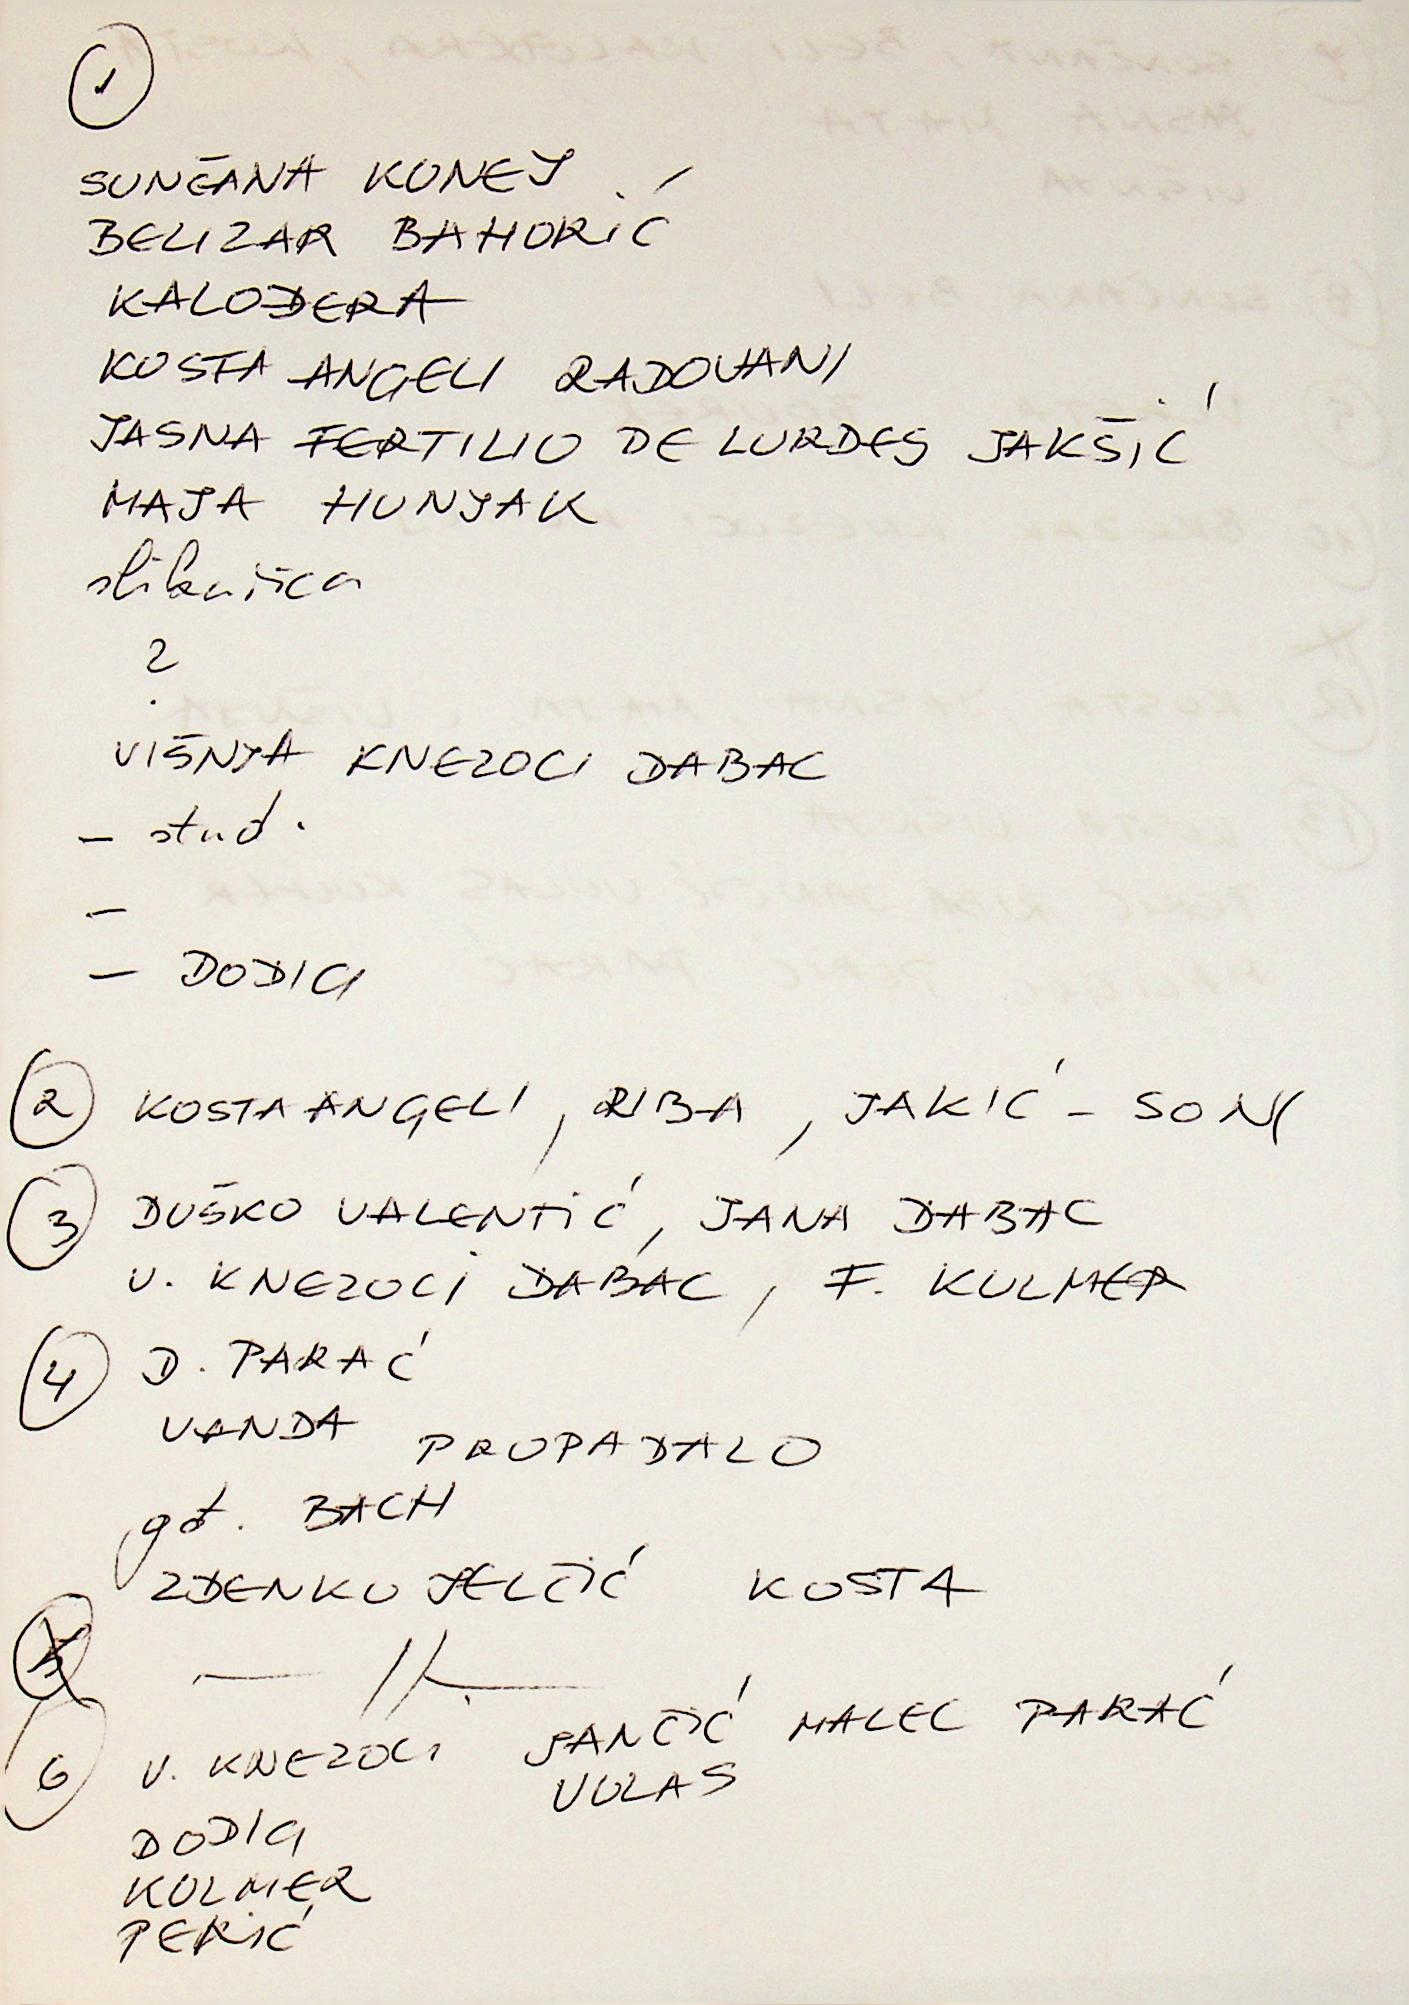 1
SUNČANA KONEJ
BELIZAR BAHORIĆ
KALODERA
KOSTA ANGELI RADOVANI
JASNA FERTILIO DE LURDES JAKŠIĆ
MAJA HUNJAK
slikarica
?
VIŠNJA KNEZOCI DABAC
– stud.
–
– DODIG
2 KOSTA ANGELI, RIBA, JAKIĆ –
3 DUŠKO VALENTIĆ, JANA DABAC
V. KNEZOCI DABAC, F. KULMER
4 D. PARAĆ
VANDA PROPADALO
gđ. BACH
ZDENKO JELČIĆ KOSTA
5 — // —
6 V. KNEZOCI JANČIĆ MALEC PARAĆ
VULAS
DODIG
KULMER
PERIĆ